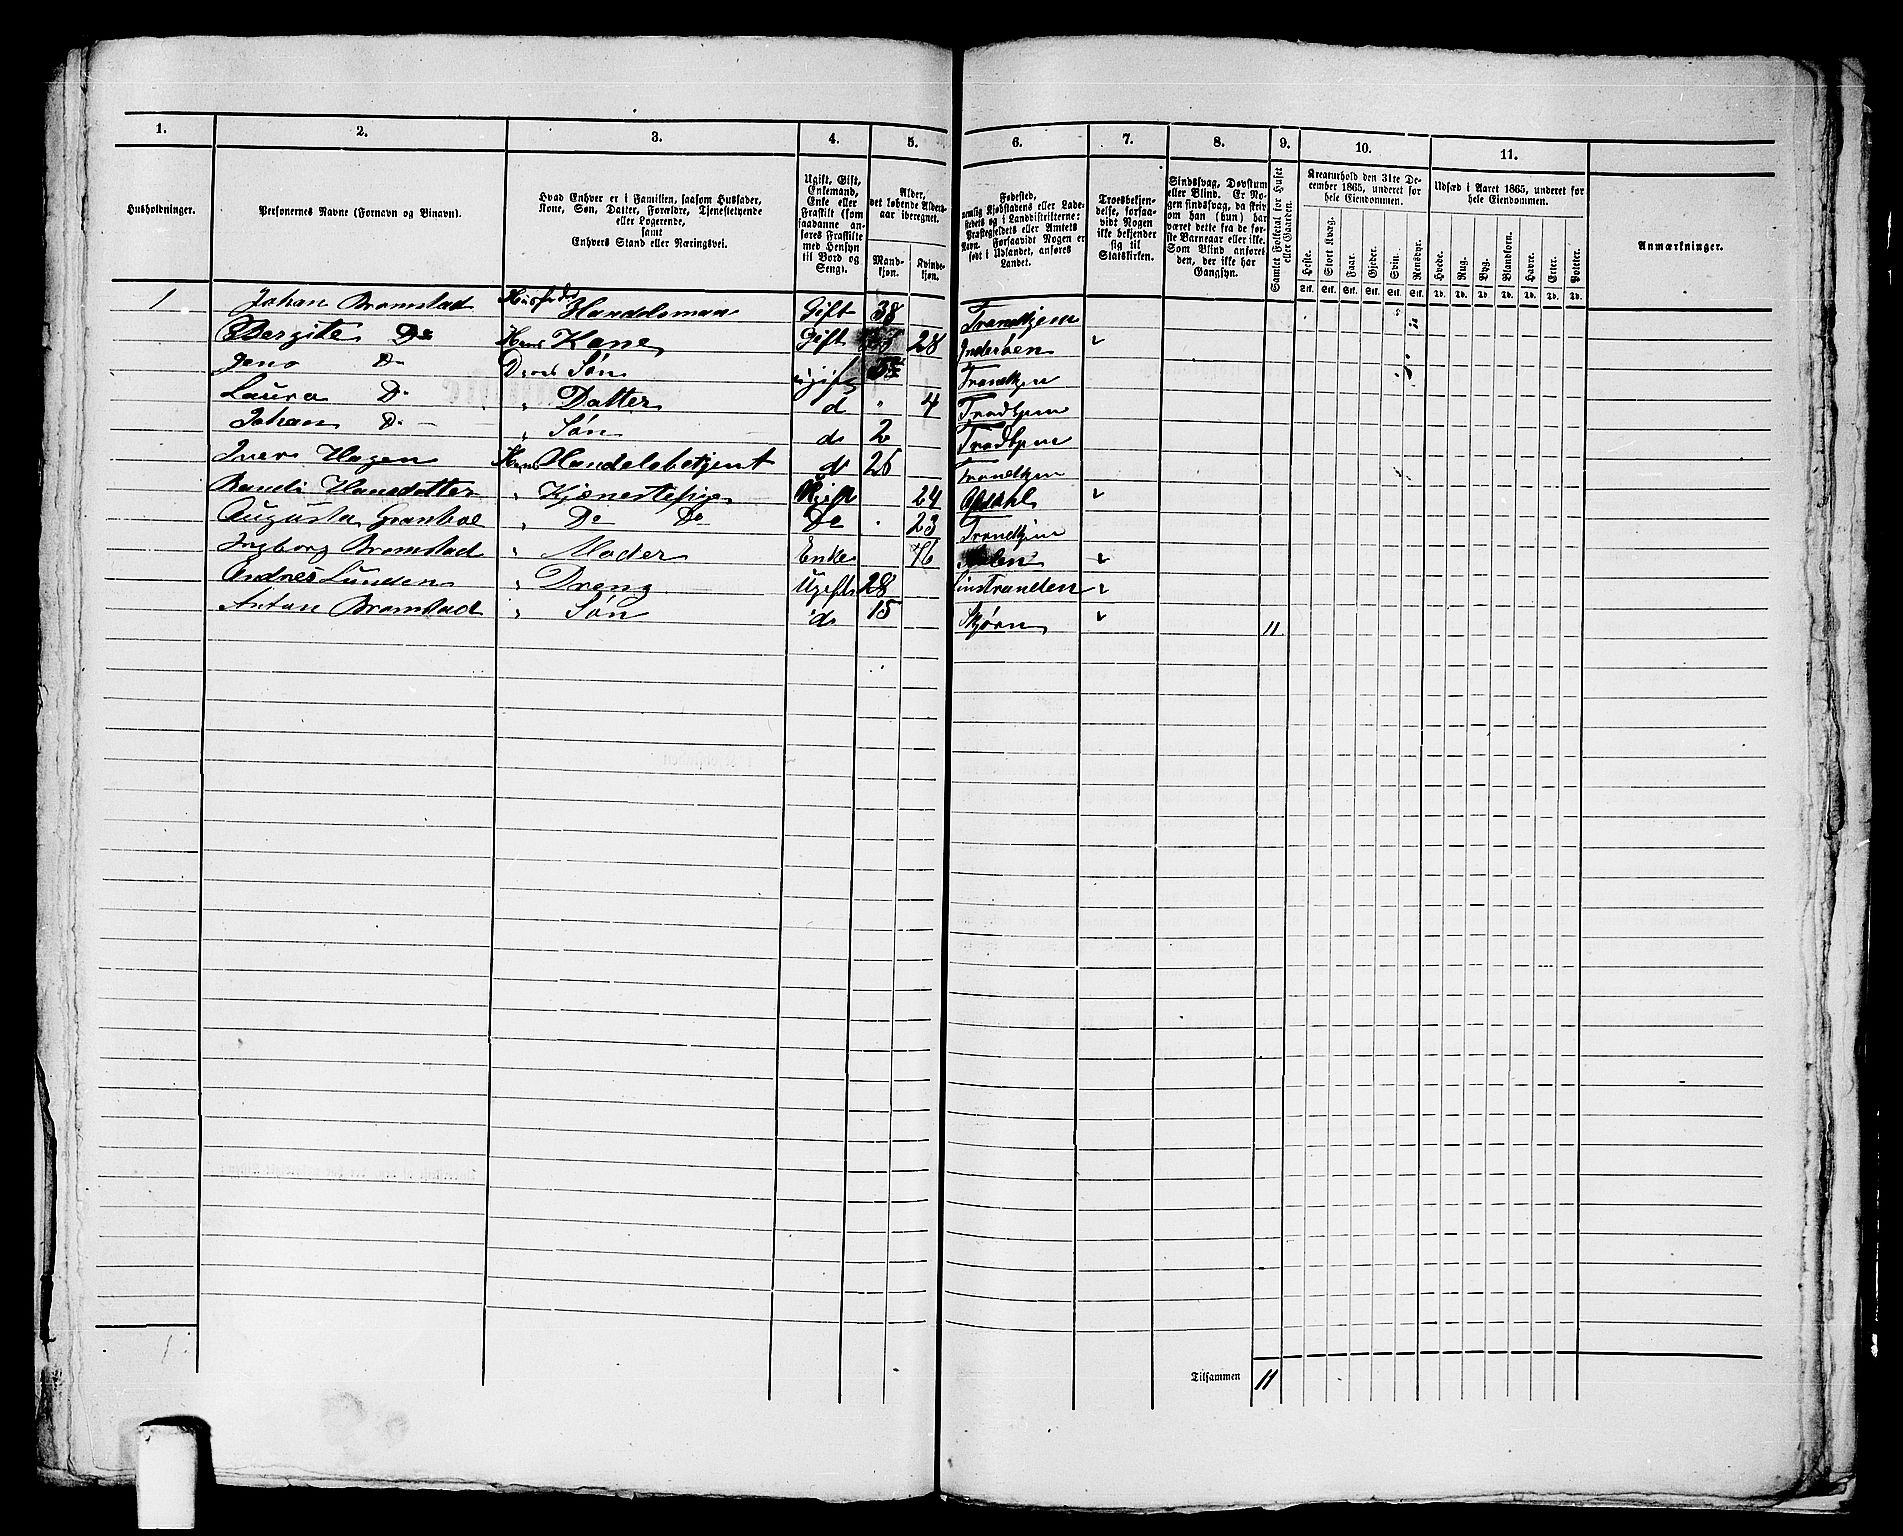 1. 2. 3. 4. 5. 6. 7. 8. 9. 10. 11.
Husholdninger.
Personernes Navne (Fornavn og Binavn).
Hvad Enhver er i Familien, saasom Husfader,
Kone, Søn, Datter, Forældre, Tjenestetyende
eller Logerende,
samt
Enhvers Stand eller Næringsvei.
Ugift, Gift,
Enkemand,
Enke eller
Fraskilt (som
saadanne an-
føres Fraskilte
med Hensyn
til Bord og
Seng).
Alder,
det løbende Alders-
aar iberegnet.
Mand-
kjøn.
Kvinde-
kjøn.
Fødested,
nemlig Kjøbstadens eller Lade-
stedets og i Landdistrikterne:
Præstegjeldets eller Amtets
Navn. Forsaavidt Nogen er
født i Udlandet, anføres
Landet.
Troesbekjen-
delse, forsaa-
vidt Nogen
ikke bekjender
sig til
Statskirken.
Sindssvag, Døvstum
eller Blind. Er No-
gen sindssvag, da skriv
om han (hun) har
været dette fra de før-
ste Barneaar eller ikke.
Som Blind anføres
den, der ikke har
Gangsyn.
Samlet Folketal for Huset
eller Gaarden.
Kreaturhold den 31te De-
cember 1865, underet for
hele Eiendommen.
Heste. Stort Kvæg. Faar. Gjeder. Svin. Rensdyr.
Stk. Stk. Stk. Stk. Stk. Stk.
Udsæd i Aaret 1865, underet for
hele Eiendommen.
Hvede. Rug. Byg. Blandkorn. Havre. Erter. Poteter.
Td. Td. Td. Td. Td. Td. Td.
Anmærkninger.
1 Johan Bromstad Husfader Handelsman Gift 38 Trondhjem
Bergite Do Hans Kone Gift 28 Inderøen
Jens Do Deres Søn ugift Trondhjem
Laura Do " Datter do " 4 Trondhjem
Johan Do " Søn do 2 Trondhjem
Iver Hagen Hans Handelsbetjent do 26 Trondhjem
Randi Hansdatter " Tjenestepige Ugift 24 Opdahl
Augusta " Do Do Do 23 Trondhjem
Ingborg Bromstad " Moder Enke 76
Andres Lunden " Dreng Ugift 28 Buvstranden
Anton Bromstad " Søn do 15 Skjørn 11
1
Tilsammen 11